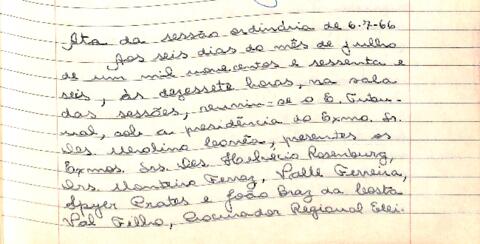 Ata da sessão ordinária de 6-7-66
Aos seis dias do mês de julho
de um mil novecentos e sessenta e
seis, às dezessete horas, na sala
das sessões, reuniu-se o E. Tribu-
nal, sob a presidência do Exmo. Sr.
Des. Merolino Corrêa, presentes os
Exmos. Srs. Des. Rosenburg,
Drs. Monteiro Ferraz, Valle Ferreira,
Spyer Prates e João Braz da Costa
Val Filho, Procurador Regional Elei-